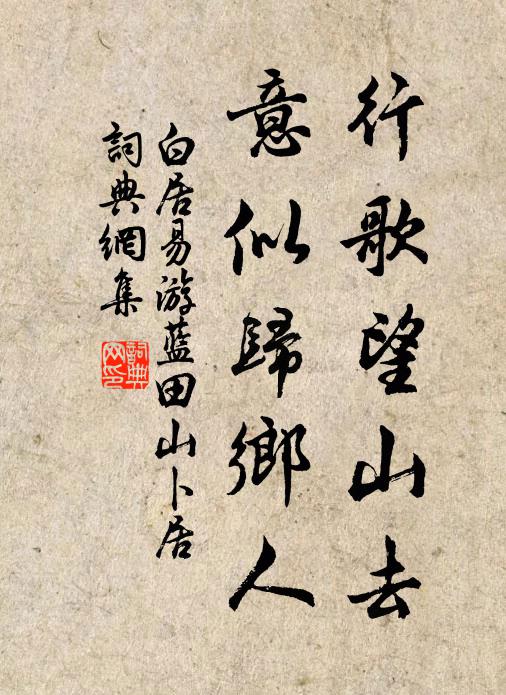 行歌望山去
意似歸鄉人
白居易游藍田山卜居
詞典網集
詞典
网印